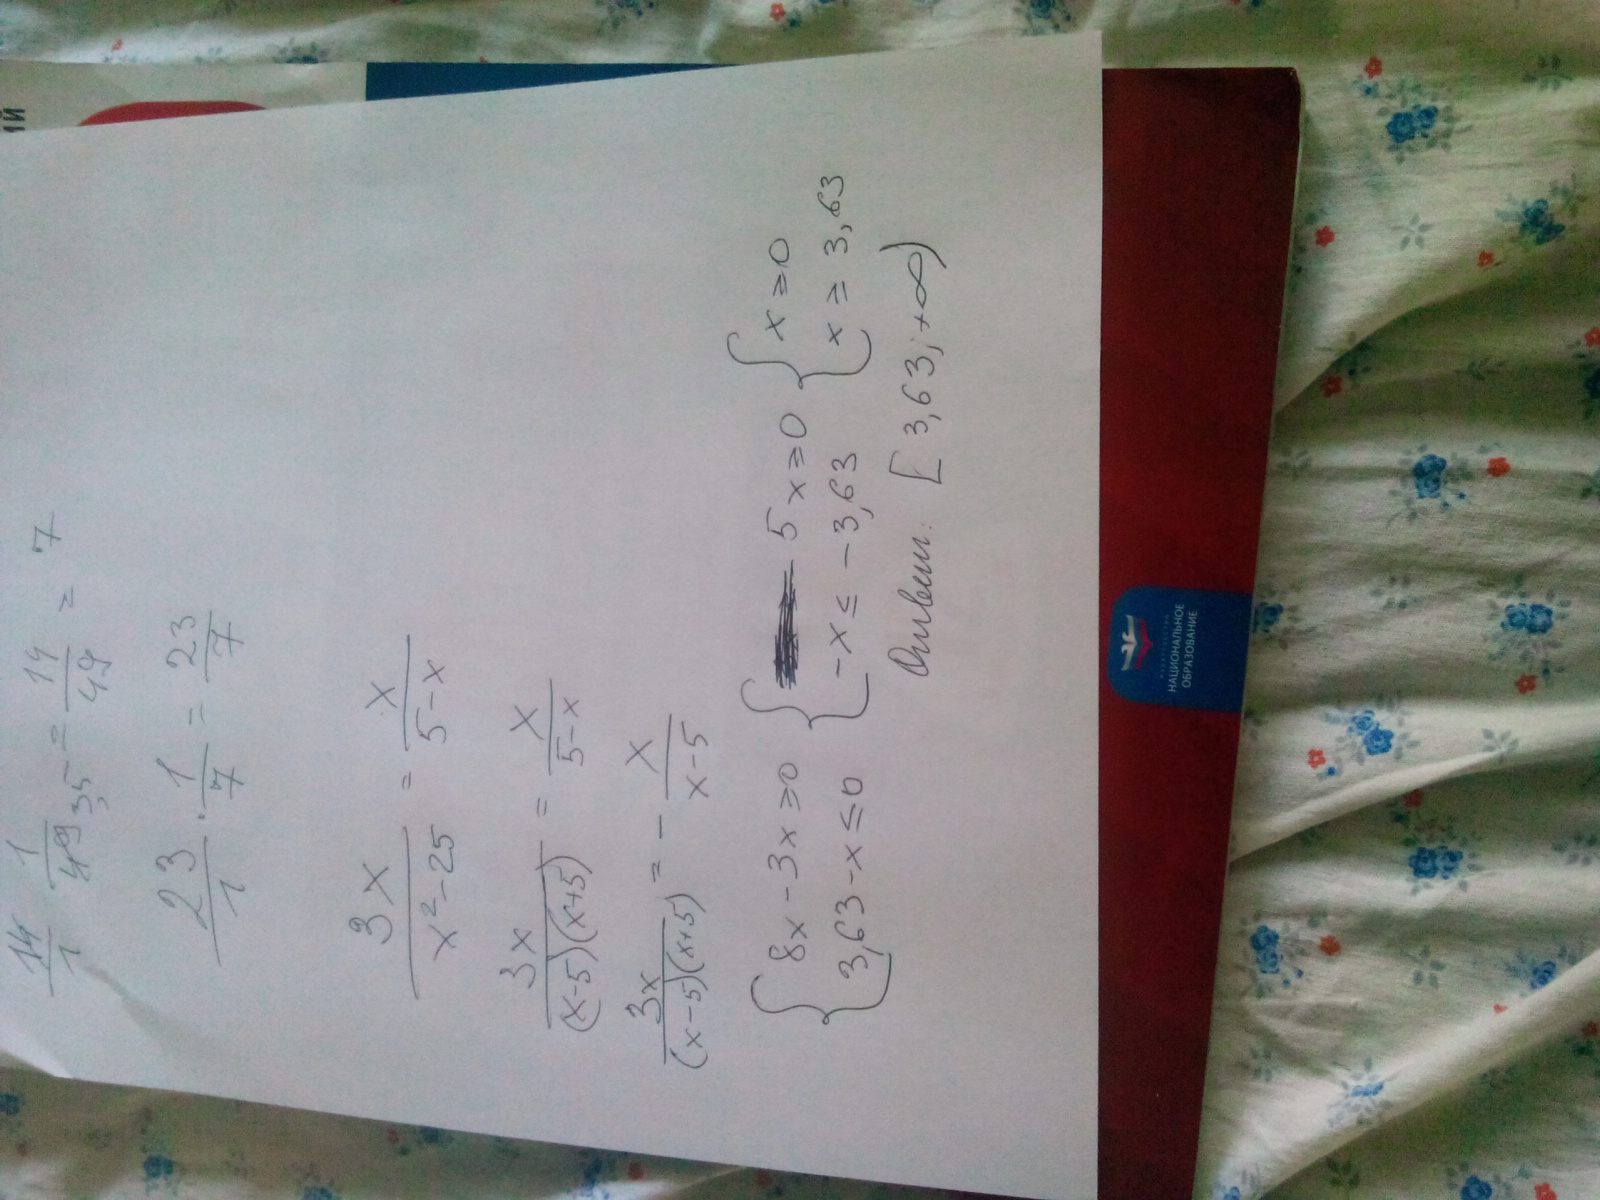 14/1 1/49 3,5 = 14/49 = 7
23/1 · 1/7 = 23/7
3x/(x²-25) = x/(5-x)
3x/((x-5)(x+5)) = x/(5-x)
3x/((x-5)(x+5)) = - x/(x-5)
{ 8x-3x≥0 { 5x≥0 { x≥0
3,63-x≤0 -x≤-3,63 x≥3,63
Ответ: [3,63; +∞)
ИЙ
НАЦИОНАЛЬНОЕ
ОБРАЗОВАНИЕ